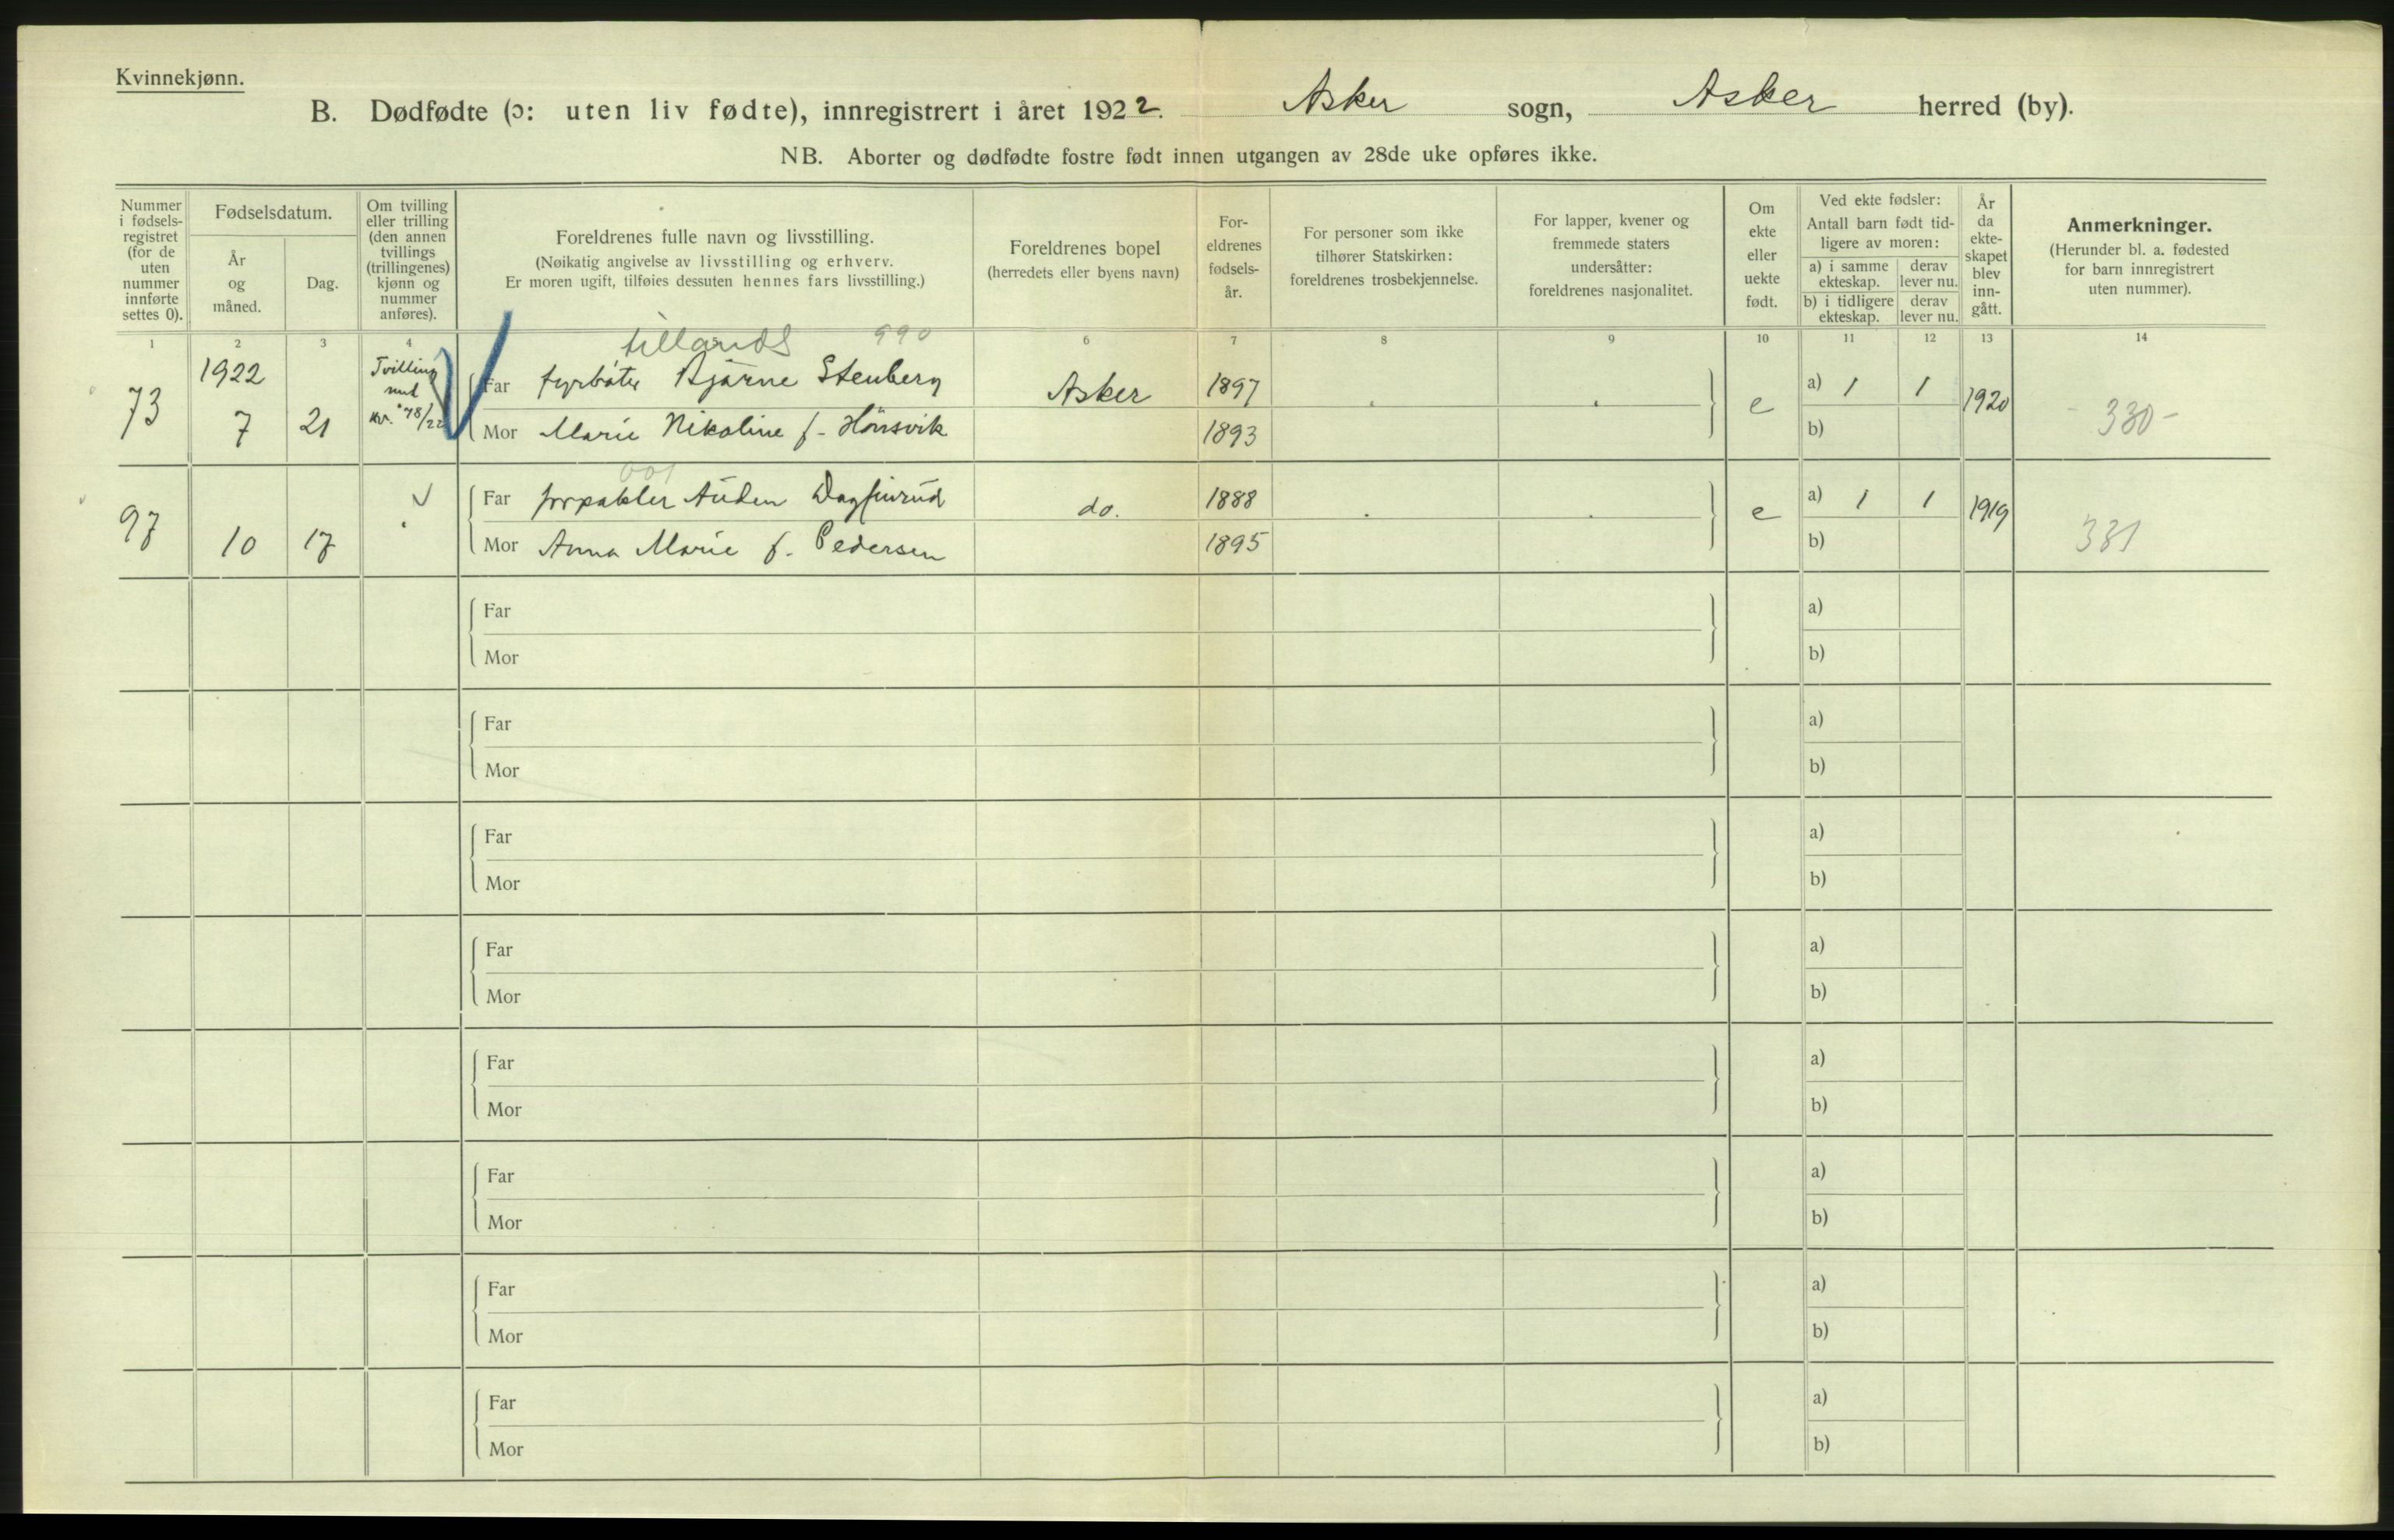 Kvinnekjønn.
B. Dødfødte (ɔ: uten liv fødte), innregistrert i året 1922. Asker sogn, Asker herred (by).
NB. Aborter og dødfødte fostre født innen utgangen av 28de uke opføres ikke.
Nummer
i fødsels-
registret
(for de
uten
nummer
innførte
settes 0).
Fødselsdatum.
År
og
måned.
Dag.
Om tvilling
eller trilling
(den annen
tvillings
(trillingenes)
kjønn og
nummer
anføres).
Foreldrenes fulle navn og livsstilling.
(Nøikatig angivelse av livsstilling og erhverv.
Er moren ugift, tilføies dessuten hennes fars livsstilling.)
Foreldrenes bopel
(herredets eller byens navn)
For-
eldrenes
fødsels-
år.
For personer som ikke
tilhører Statskirken:
foreldrenes trosbekjennelse.
For lapper, kvener og
fremmede staters
undersåtter:
foreldrenes nasjonalitet.
Om
ekte
eller
uekte
født.
Ved ekte fødsler:
Antall barn født tid-
ligere av moren:
a) i samme
ekteskap.
derav
lever nu.
b) i tidligere
ekteskap.
derav
lever nu.
År
da
ekte-
skapet
blev
inn-
gått.
Anmerkninger.
(Herunder bl. a. fødested
for barn innregistrert
uten nummer).
1 2 3 4 6 7 8 9 10 11 12 13 14
tillands 990
73 1922 7 21
Tvilling
med
kv. 78/22
Far fyrbøter Bjarne Stenberg Asker 1897 e a) 1 1 1920 330
Mor Marie Nikoline f. Hönsvik 1893 b)
001
97 10 17 Far forpakter Auden Dagfinrud do. 1888 e a) 1 1 1919 331
Mor Anna Marie f. Pedersen 1895 b)
Far a)
Mor b)
Far a)
Mor b)
Far a)
Mor b)
Far a)
Mor b)
Far a)
Mor b)
Far a)
Mor b)
Far a)
Mor b)
Far a)
Mor b)